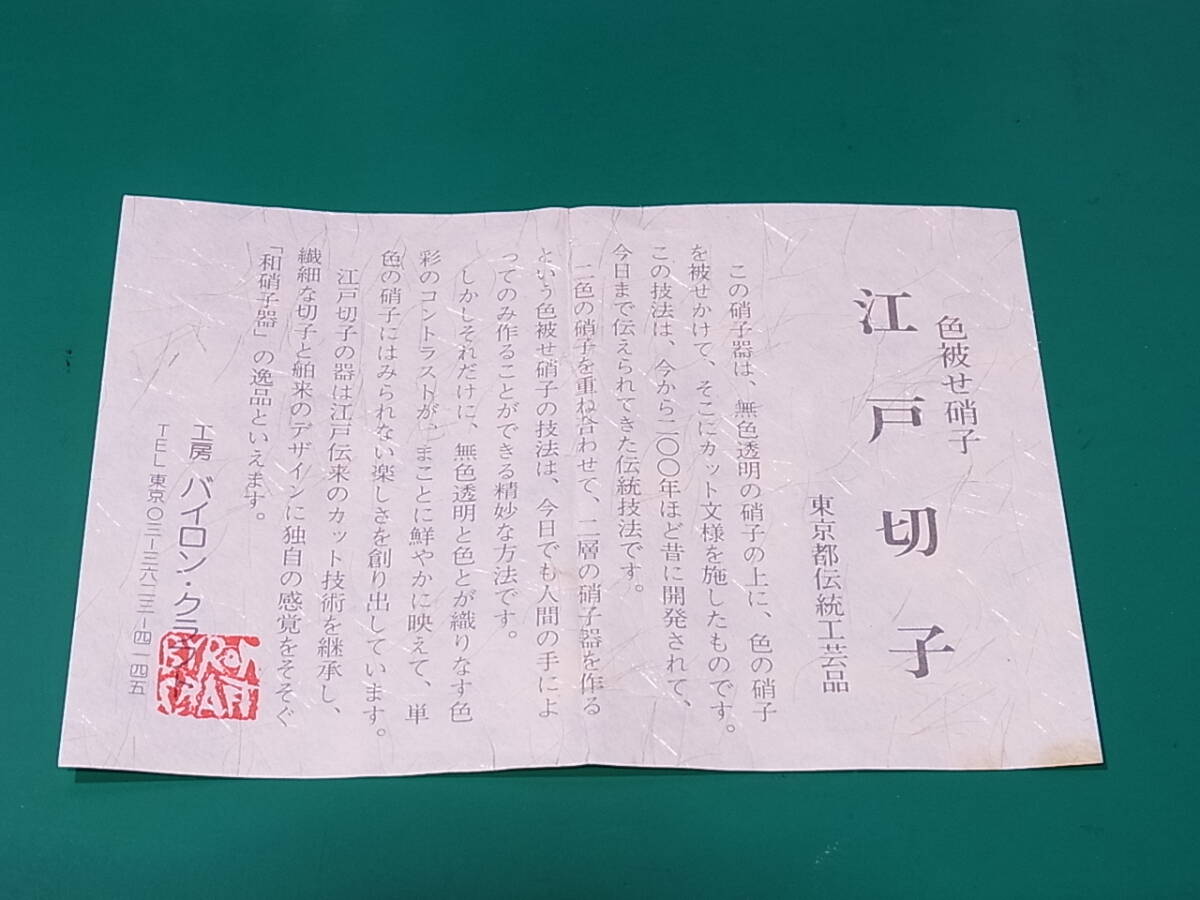 色被せ硝子
江戸切子
東京都伝統工芸品
この硝子器は、無色透明の硝子の上に、色の硝子
を被せかけて、そこにカット文様を施したものです。
この技法は、今から二〇〇年ほど昔に開発されて、
今日まで伝えられてきた伝統技法です。
二色の硝子を重ね合わせて、二層の硝子器を作る
という色被せ硝子の技法は、今日でも人間の手によ
ってのみ作ることができる精妙な方法です。
しかしそれだけに、無色透明と色とが織りなす色
彩のコントラストが、まことに鮮やかに映えて、単
色の硝子にはみられない楽しさを創り出しています。
江戸切子の器は江戸伝来のカット技術を継承し、
繊細な切子と舶来のデザインに独自の感覚をそそぐ
「和硝子器」の逸品といえます。
工房 バイロン・クラフト
TEL 東京〇三ー三六一三ー四一四五
BYRON
CRAFT